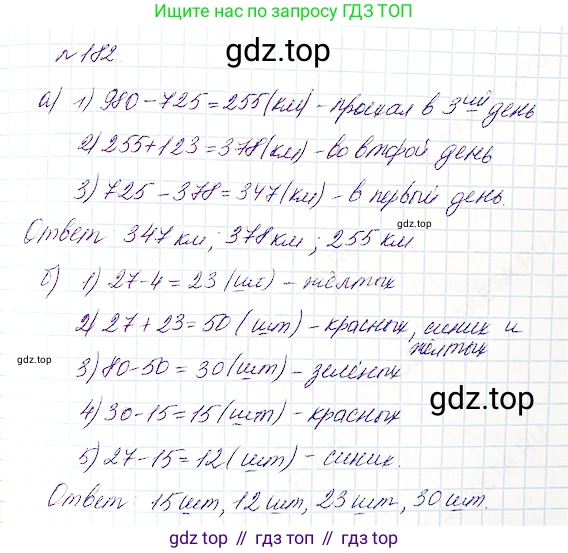 Ищите нас по запросу ГДЗ ТОП
gdz.top
№ 182.
а) 1) 980 - 725 = 255 (км) - проехал в 3ий день
2) 255 + 123 = 378 (км) - во второй день
3) 725 - 378 = 347 (км) - в первый день.
gdz.top
Ответ: 347 км; 378 км; 255 км
б) 1) 27 - 4 = 23 (шт) - жёлтых
2) 27 + 23 = 50 (шт) - красных, синих и
жёлтых
gdz.top
3) 80 - 50 = 30 (шт) - зелёных
4) 30 - 15 = 15 (шт) - красных
gdz.top
5) 27 - 15 = 12 (шт) - синих.
Ответ: 15 шт, 12 шт, 23 шт, 30 шт.
gdz.top // gdz.top // gdz.top // gdz.top